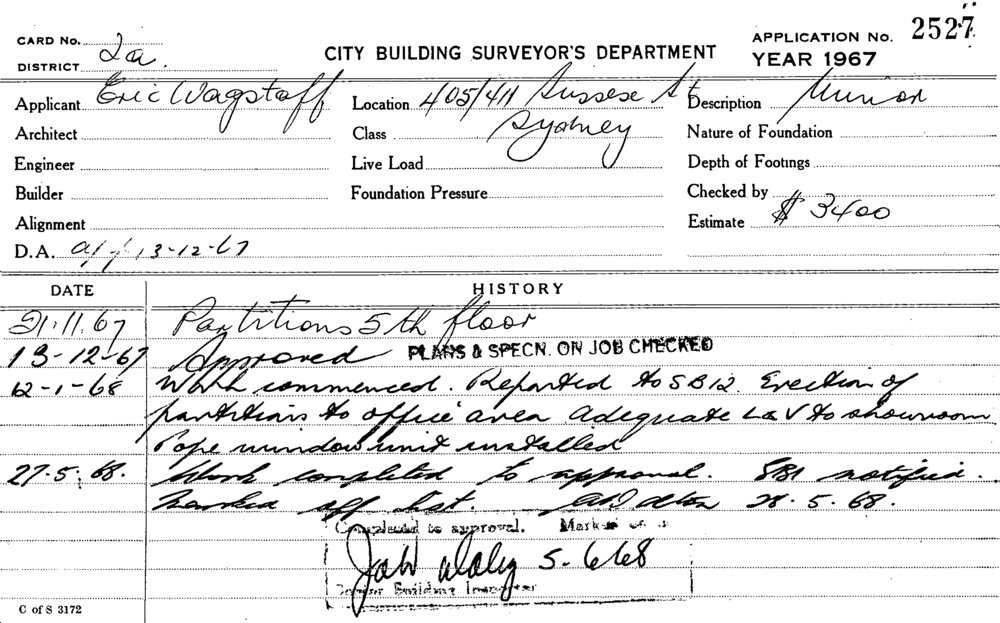 CARD No. 2a
DISTRICT
CITY BUILDING SURVEYOR'S DEPARTMENT
APPLICATION No. 2527
YEAR 1967
Applicant Eric Wagstaff
Location 405/411 Sussex St
Sydney
Description Minor
Architect
Class
Nature of Foundation
Engineer
Live Load
Depth of Footings
Builder
Foundation Pressure
Checked by
Alignment
Estimate $ 3400
D.A. 13-12-67
DATE HISTORY
21.11.67 Partitions 5th floor
13-12-67 Approved PLANS & SPECN. ON JOB CHECKED
12-1-68 Work commenced. Reported to SB12. Erection of
partitions to office area adequate L&V to showroom
Pope window unit installed
27.5.68. Work completed to approval. SBI notified.
Marked off list. 28.5.68.
Completed to approval. Marked off
Daley 5-6-68
Senior Building Inspector
C of S 3172